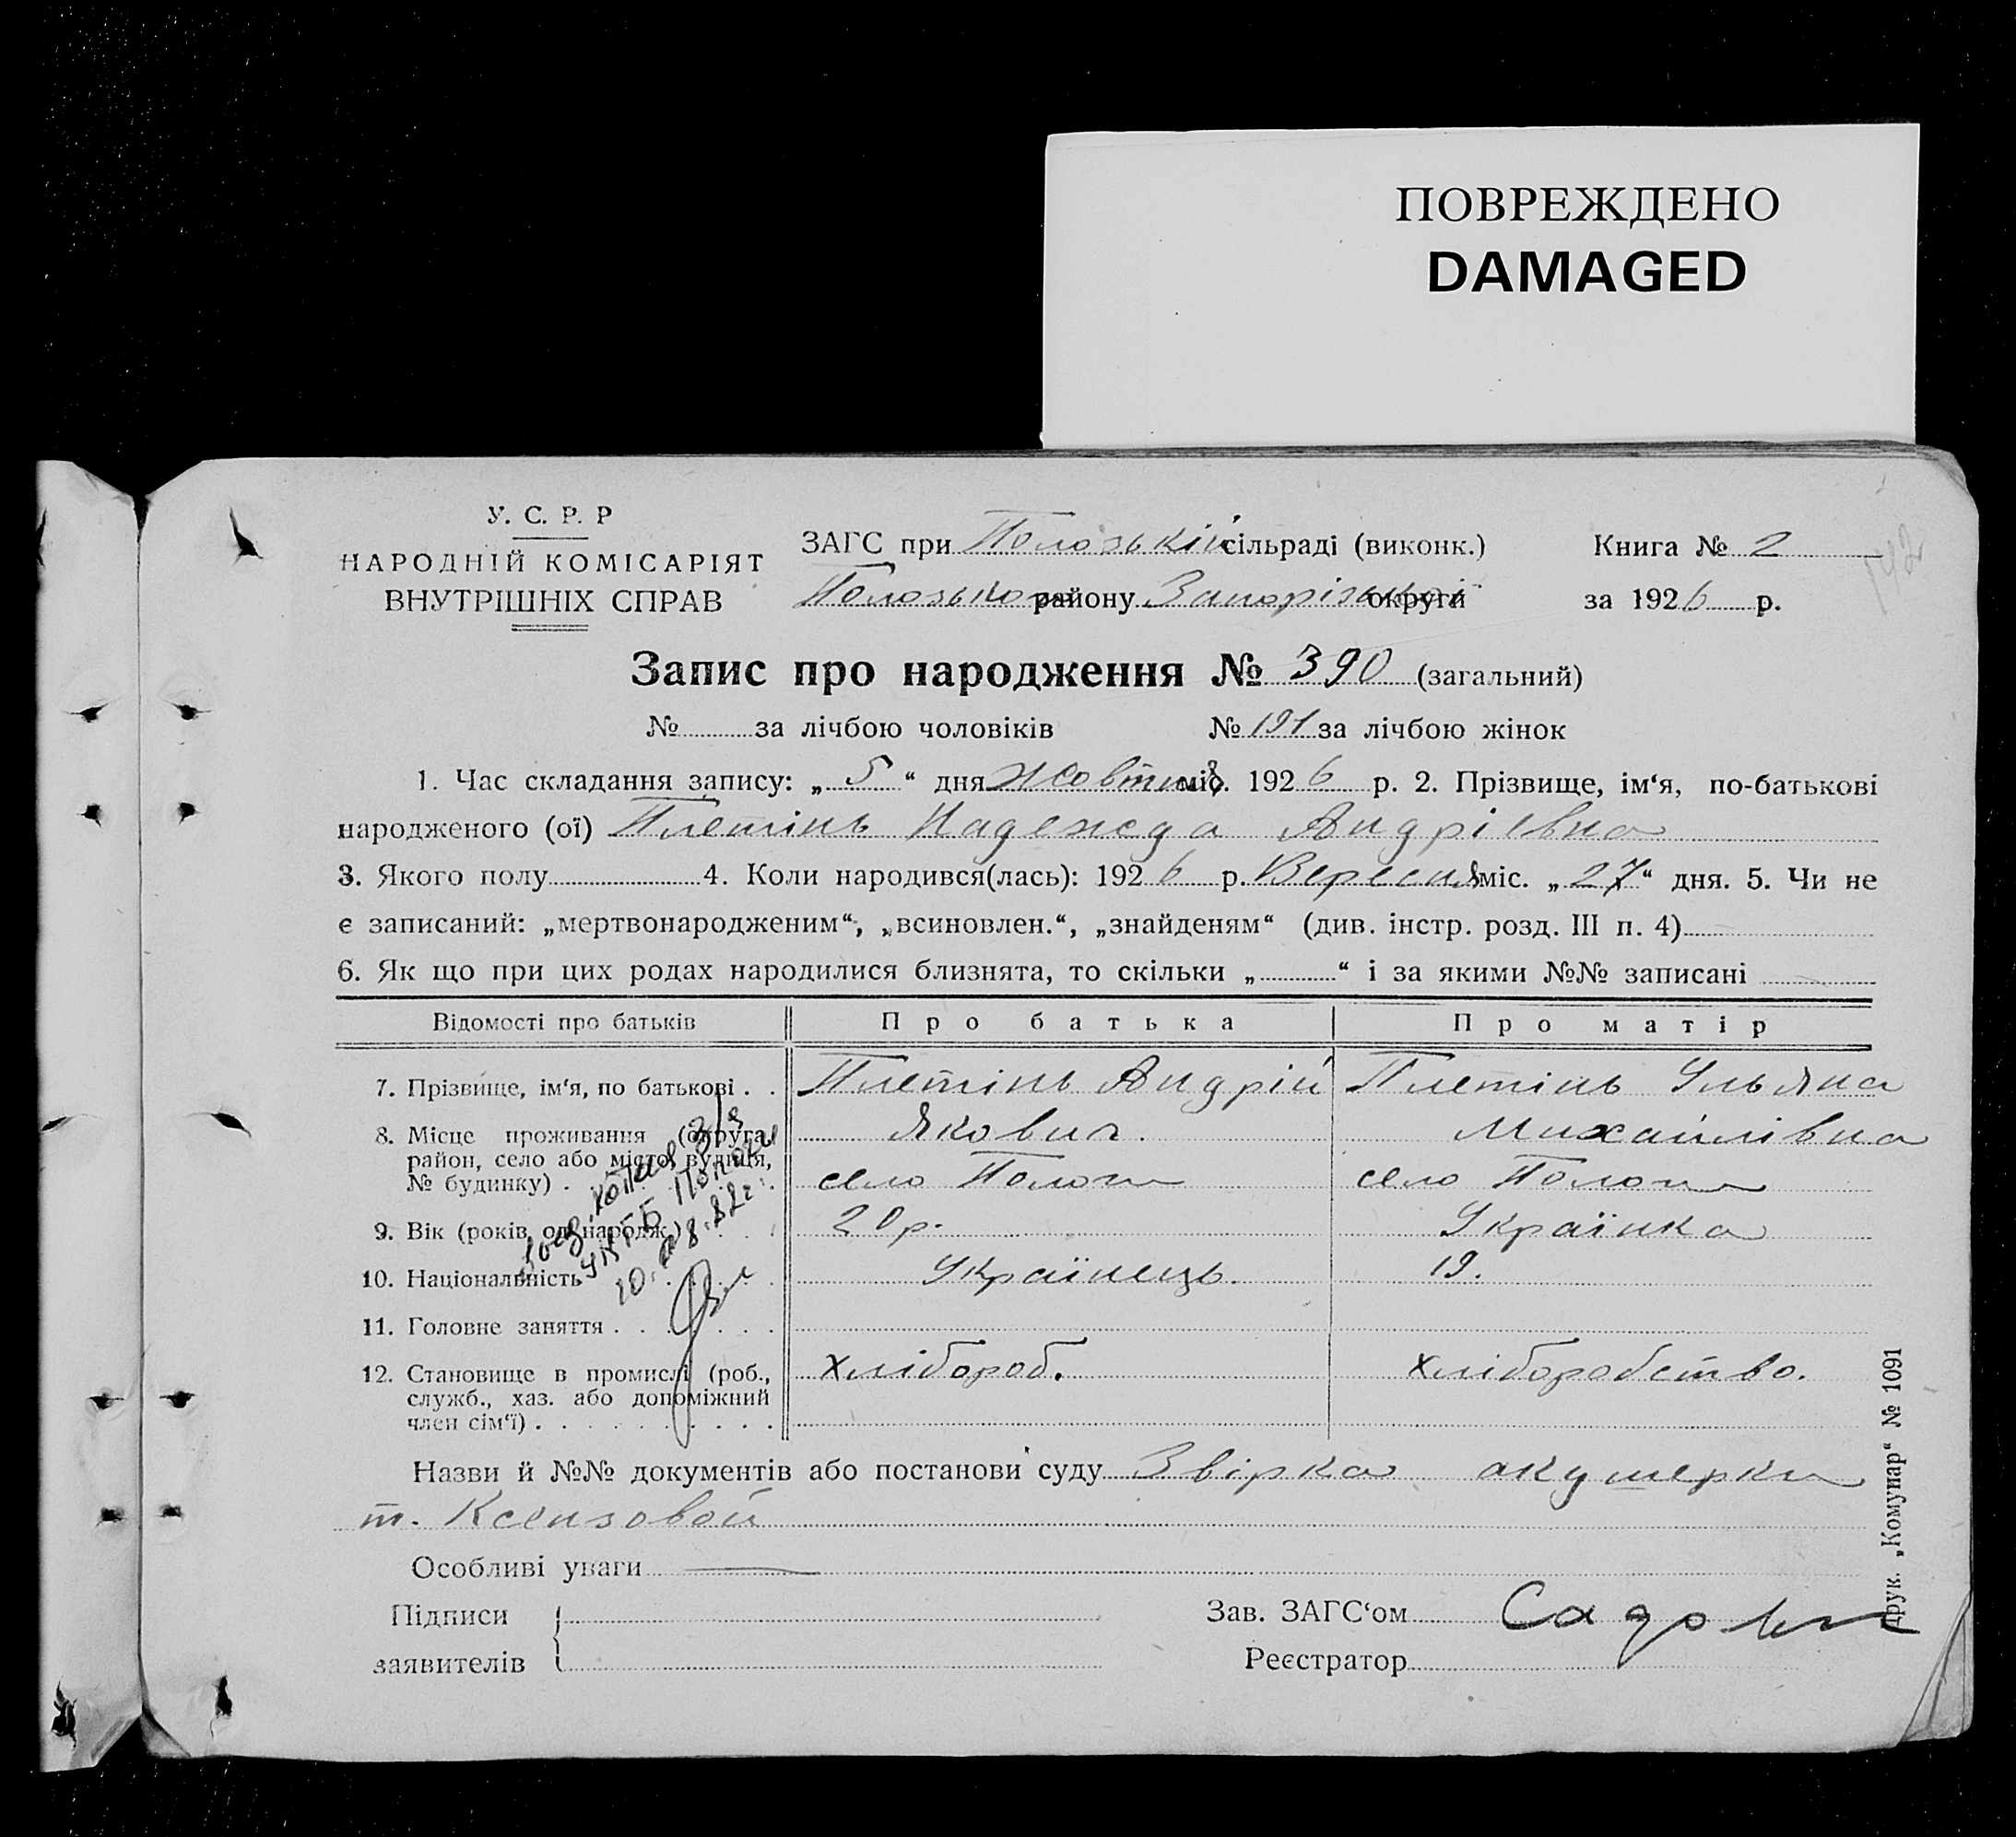 ПОВРЕЖДЕНО
DAMAGED
У. С. Р. Р
НАРОДНІЙ КОМІСАРІЯТ
ВНУТРІШНІХ СПРАВ
ЗАГС при Полозькій сільраді (виконк.)
Полозького району Запорізької округи
Книга № 2
за 1926 р.
142
Запис про народження № 390 (загальний)
№ за лічбою чоловіків № 191 за лічбою жінок
1. Час складання запису: „ 5 “ дня Жовтня міс. 1926 р. 2. Прізвище, ім‘я, по-батькові
народженого (ої) Плетінь Надежда Андріівна
3. Якого полу 4. Коли народився(лась): 1926 р. Вересня міс. „ 27 “ дня. 5. Чи не
є записаний: „мертвонародженим“, „всиновлен.“, „знайденям“ (див. інстр. розд. III п. 4)
6. Як що при цих родах народилися близнята, то скільки „ “ і за якими №№ записані
Відомості про батьків Про батька Про матір
7. Прізвище, ім‘я, по батькові . . Плетінь Андрій Плетінь Ульяна
8. Місце проживання (округа, Якович. Михайлівна
район, село або місто, вулиця,
№ будинку) . село Пологи село Пологи
9. Вік (років, од народж.) 20 р. Українка
10. Національність Українець. 19.
11. Головне заняття . . . . . . .
12. Становище в промислі (роб., Хлібороб. Хліборобство.
служб., хаз. або допоміжний
член сім‘ї) . . . . . . . . . .
Назви й №№ документів або постанови суду Звірка акушерки
т. Ксензовой
Особливі уваги
Підписи
заявителів
Зав. ЗАГС‘ом
Реєстратор
друк. „Комунар“ № 1091